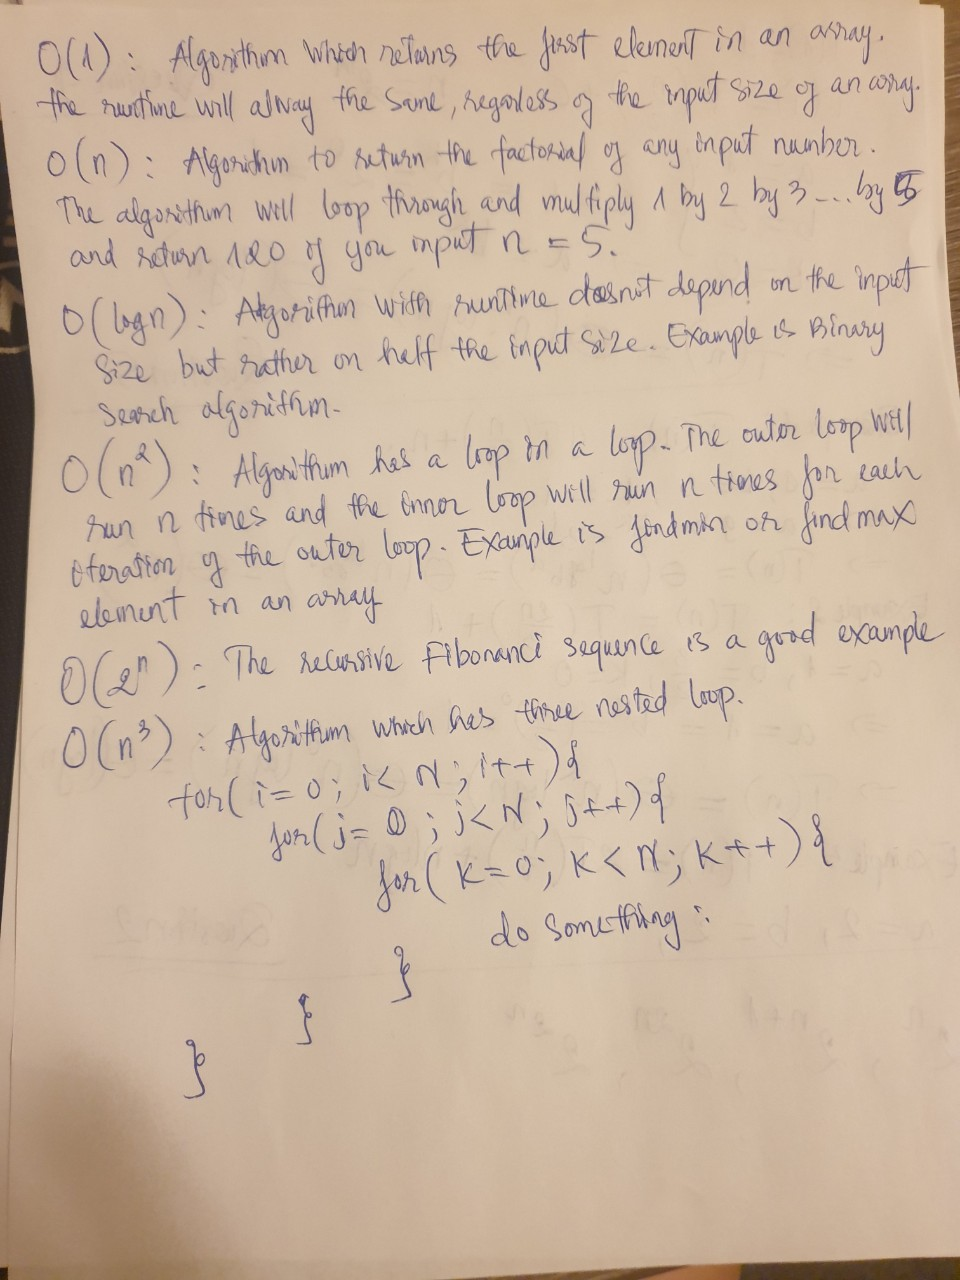 O(1) : Algorithm which returns the first element in an array.
the runtime will alway the same, regarless of the input size of an array.
O(n) : Algorithm to return the factorial of any input number.
The algorithm will loop through and multiply 1 by 2 by 3 .... by 5
and return 120 if you input n = 5.
O(logn) : Algorithm with runtime doesnot depend on the input
size but rather on half the input size. Example is Binary
search algorithm.
O(n²) : Algorithm has a loop in a loop. The outer loop will
run n times and the inner loop will run n times for each
iteration of the outer loop. Example is findmin or findmax
element in an array
O(2ⁿ) : The recursive Fibonanci sequence is a good example
O(n³) : Algorithm which has three nested loop.
for( i=0; i< N; i++){
for( j= 0; j<N; j++){
for( k=0; k<N; k++){
do something;
}
}
}